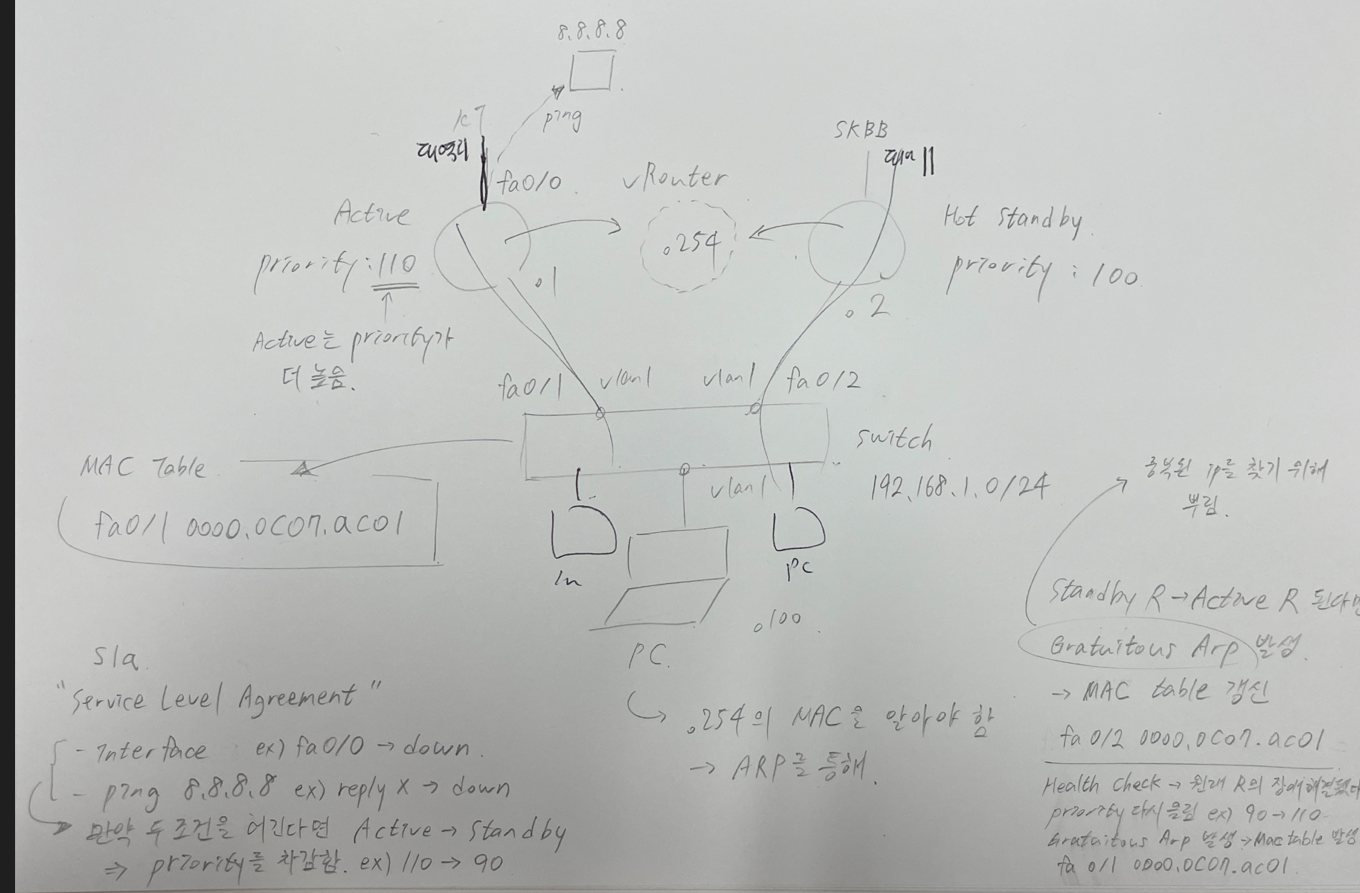 8.8.8.8
ping
KT
대역폭
fa0/0
vRouter
SKBB
Active
priority:110
.1
.254
Hot Standby
priority : 100
.2
Active는 priority가
더 높음.
fa0/1
vlan1
vlan1
fa0/2
switch
192.168.1.0/24
vlan1
MAC Table
fa0/1 0000.0C07.ac01
PC
PC.
.100
.254의 MAC을 알아야 함
→ ARP를 통해.
중복된 ip를 찾기 위해
뿌림.
Standby R→Active R 된다면
Gratuitous Arp 발생.
→ MAC table 갱신
fa 0/2 0000.0C07.ac01
Health Check → 원래 R의 장애해결됐다
priority 다시 올림 ex) 90→110
Gratuitous Arp 발생 →Mac table 발생
fa 0/1 0000.0C07.ac01.
sla.
"Service Level Agreement"
- Interface ex) fa0/0 → down.
- ping 8.8.8.8 ex) reply x → down
만약 두 조건을 어긴다면 Active → Standby
⇒ priority를 차감함. ex) 110 → 90